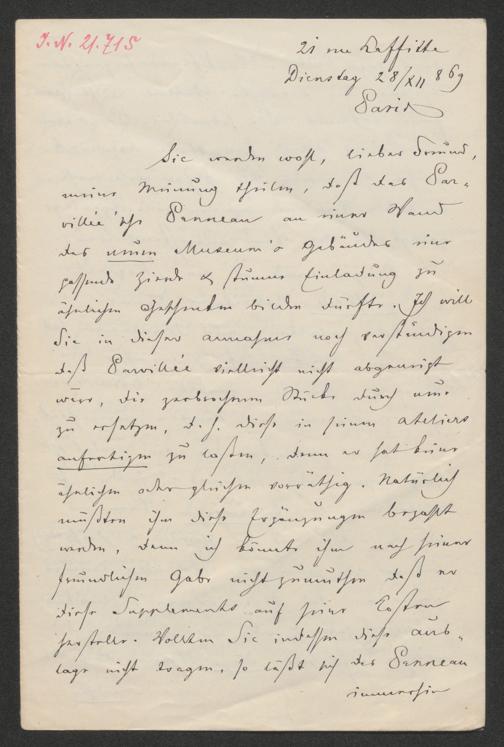 I. N. 21.715
21 rue Laffitte
Dienstag 28/XII 869
Paris
Sie werden wohl, lieber Freund,
meine Meinung theilen, daß das Par-
villée'sche Panneau an einer Wand
des neuen Museum's Gebäudes eine
passende Zierde & stumme Einladung zu
ähnlichen Geschenken bilden dürfte. Ich will
Sie in dieser Annahme noch verständigen
daß Parvillée vielleicht nicht abgeneigt
wäre, die zerbrochenen Stücke durch neue
zu ersetzen, d. h. diese in seinem Atelier
anfertigen zu lassen, denn er hat keine
ähnlichen oder gleichen vorräthig. Natürlich
müßten ihm diese Ergänzungen bezahlt
werden, denn ich könnte ihm nach seiner
freundlichen Gabe nicht zumuthen daß er
diese Supplements auf seine Kosten
herstelle. Wollten Sie indessen diese Aus-
lage nicht wagen, so läßt sich das Panneau
immerhin